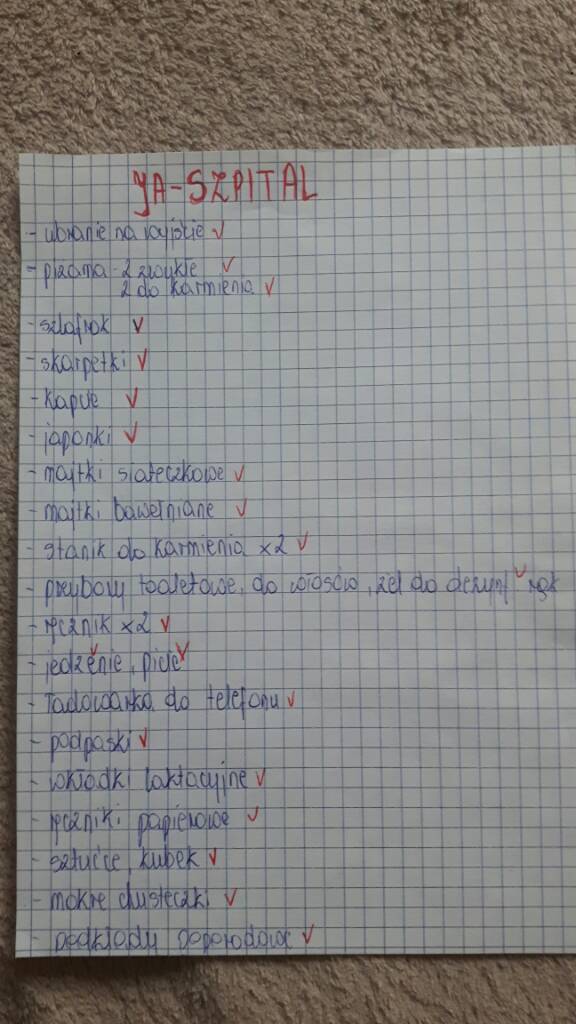 JA-SZPITAL
- ubranie na wyjście
- piżama - 2 zwykłe
2 do karmienia
- szlafrok
- skarpetki
- kapcie
- japonki
- majtki siateczkowe
- majtki bawełniane
- stanik do karmienia x2
- przybory toaletowe, do włosów, żel do dezynf rąk
- ręcznik x2
- jedzenie, picie
- ładowarka do telefonu
- podpaski
- wkładki laktacyjne
- ręczniki papierowe
- sztućce, kubek
- mokre chusteczki
- podkłady poporodowe